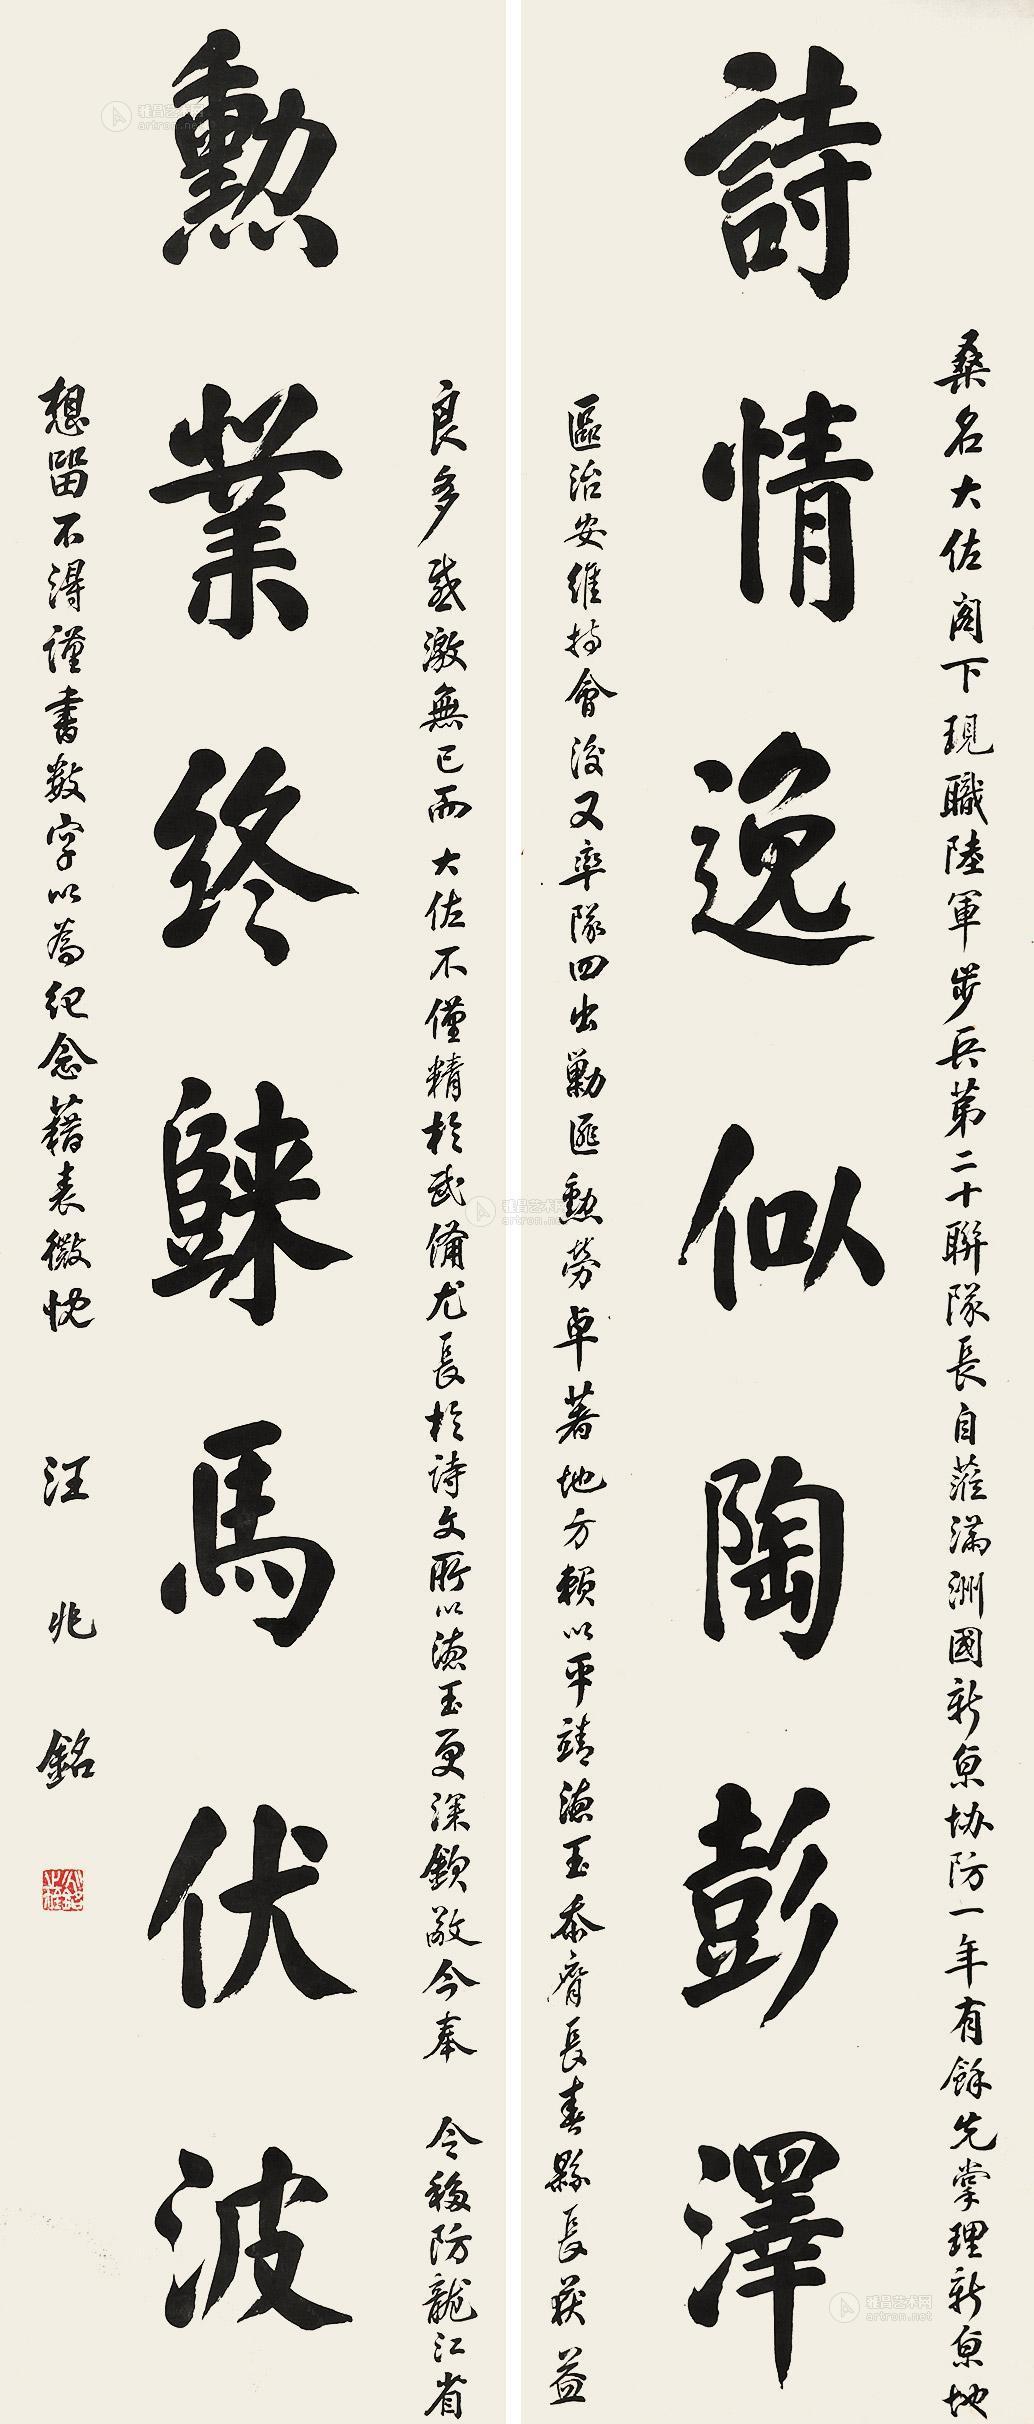 詩情逸似陶彭澤
桑名大佐閣下現職陸軍步兵第二十聯隊長自蒞滿洲國新京協防一年有餘先掌理新京地
區治安維持會後又率隊四出勦匪勲勞卓著地方賴以平靖德玉忝膺長春縣長获益
勲業終歸馬伏波
良多感激無已而大佐不僅精於武備尤長於詩文所以德玉更深欽敬今奉 令移防龍江省
想留不得謹書數字以為紀念藉表微忱
汪兆銘
雅昌艺术网
artron.net
雅昌艺术网
artron.net
雅昌艺术网
artron.net